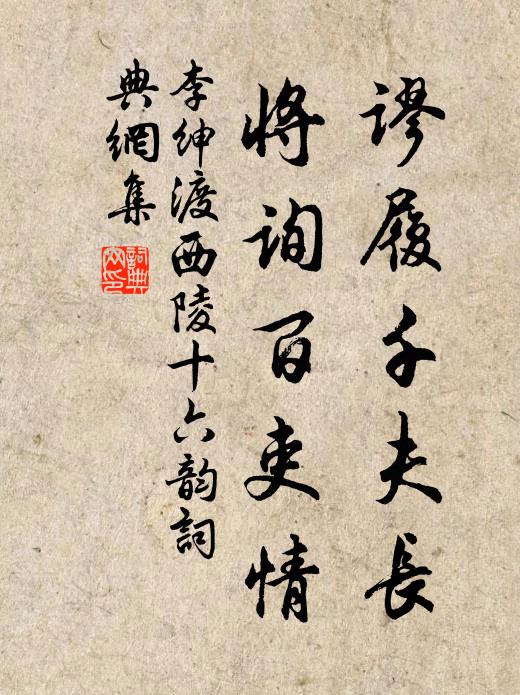 謬履千夫長
將詢百吏情
李紳渡西陵十六韵詞
典網集
詞典網印